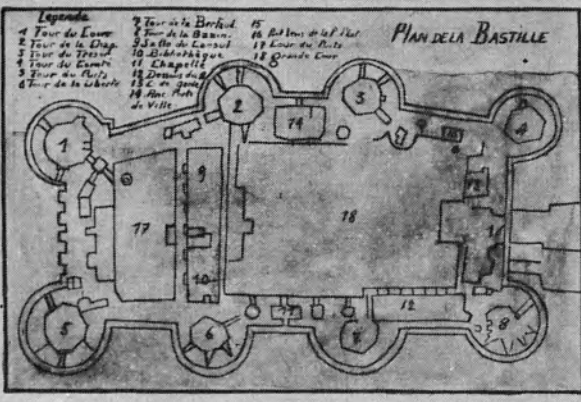 Legende
1 Tour du Coin
2 Tour de la Chap.
3 Tour du Tresor
4 Tour du Comté
5 Tour du Puits
6 Tour de la Liberté
7 Tour de la Bertaud.
8 Tour de la Bazin.
9 Salle du Consul
10 Bibliothèque
11 Chapelle
12
13 C. de garde
14 Anc Porte
de Ville
15
16
17 Cour du Puits
18 Grande Cour
PLAN DE LA BASTILLE
1
2
3
4
14
9
17
18
10
12
5
6
8